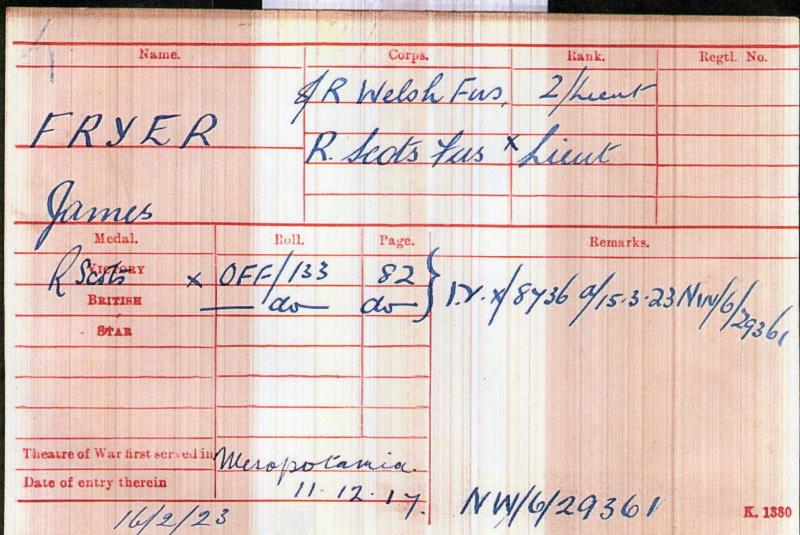 Name. Corps. Rank. Regtl. No.
R Welsh Fus. 2/Lieut
FRYER
R. Scots Fus x Lieut
James
Medal. Roll. Page. Remarks.
VICTORY R Scots x OFF/133 82
BRITISH do do
I.V. x/8736 d/15.3.23 NW/6/29361
STAR
Theatre of War first served in Mesopotamia.
Date of entry therein 11.12.17.
NW/6/29361
K. 1380
16/2/23